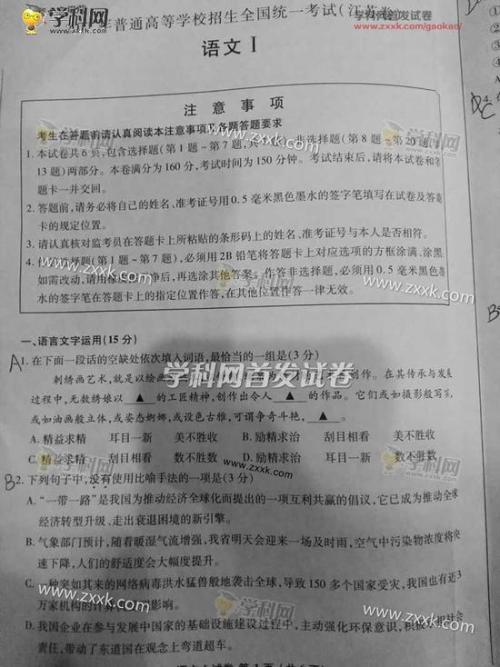 学科网
年普通高等学校招生全国统一考试(江苏卷)
学科网首发试卷
www.zxxk.com/gaokao/
语文 I
注 意 事 项
考生在答题前请认真阅读本注意事项及各题答题要求
1. 本试卷共 6 页,包含选择题(第 1 题~第 7 题,共 非选择题(第 8 题~第 20 题,
13 题)两部分。本卷满分为 160 分,考试时间为 150 分钟。考试结束后,请将本试卷和答
题卡一并交回。
2. 答题前,请务必将自己的姓名、准考证号用 0.5 毫米黑色墨水的签字笔填写在试卷及答题
卡的规定位置。
3. 请认真核对监考员在答题卡上所粘贴的条形码上的姓名、准考证号与本人是否相符。
4. 作答选择题(第 1 题~第 7 题),必须用 2B 铅笔将答题卡上对应选项的方框涂满、涂黑
如需改动,请用橡皮擦干净后,再选涂其他答案。作答非选择题,必须用 0.5 毫米黑
水的签字笔在答题卡上的指定位置作答,在其他位置作答一律无效。
www.zxxk.com
一、语言文字运用(15 分)
A 1. 在下面一段话的空缺处依次填入词语,最恰当的一组是(3 分)
学科网首发试卷
刺绣画艺术,就是以绘画 创作。在其传承与发展
过程中,无数绣娘以 ▲ 的工匠精神,创作出令人 ▲ 的作品。它们或如摄影般写
或如油画般立体,或姿态婀娜,或设色古雅,可谓争奇斗艳, ▲ 。
A. 精益求精 耳目一新 美不胜收 B. 励精求治 刮目相看 美不胜收
C. 精益求精 刮目相看 数不胜数 D. 励精求治 耳目一新 数不胜数
www.zxxk.com
B 2. 下列句子中,没有使用比喻手法的一项是(3 分)
A. “一带一路”是我国为推动经济全球化而提出的一项互利共赢的倡议,它已成为推动全球
经济转型升级、走出衰退困境的新引擎。
B. 气象部门预计,随着暖湿气流增强,我省明天会迎来一场及时雨,空气中污染物浓度将
速下降,人们的舒适度会大幅度提升。
C. 一种突如其来的网络病毒洪水猛兽般地袭击全球,导致 150 多个国家受灾,我国也有近3
万家机构的计算机
学科网
www.zxxk.com
D. 我国企业在参与发展中国家的基础设施建设过程中,主动强化环保意识,积极承担社会
责任,带动了东道国在观念上弯道超车。